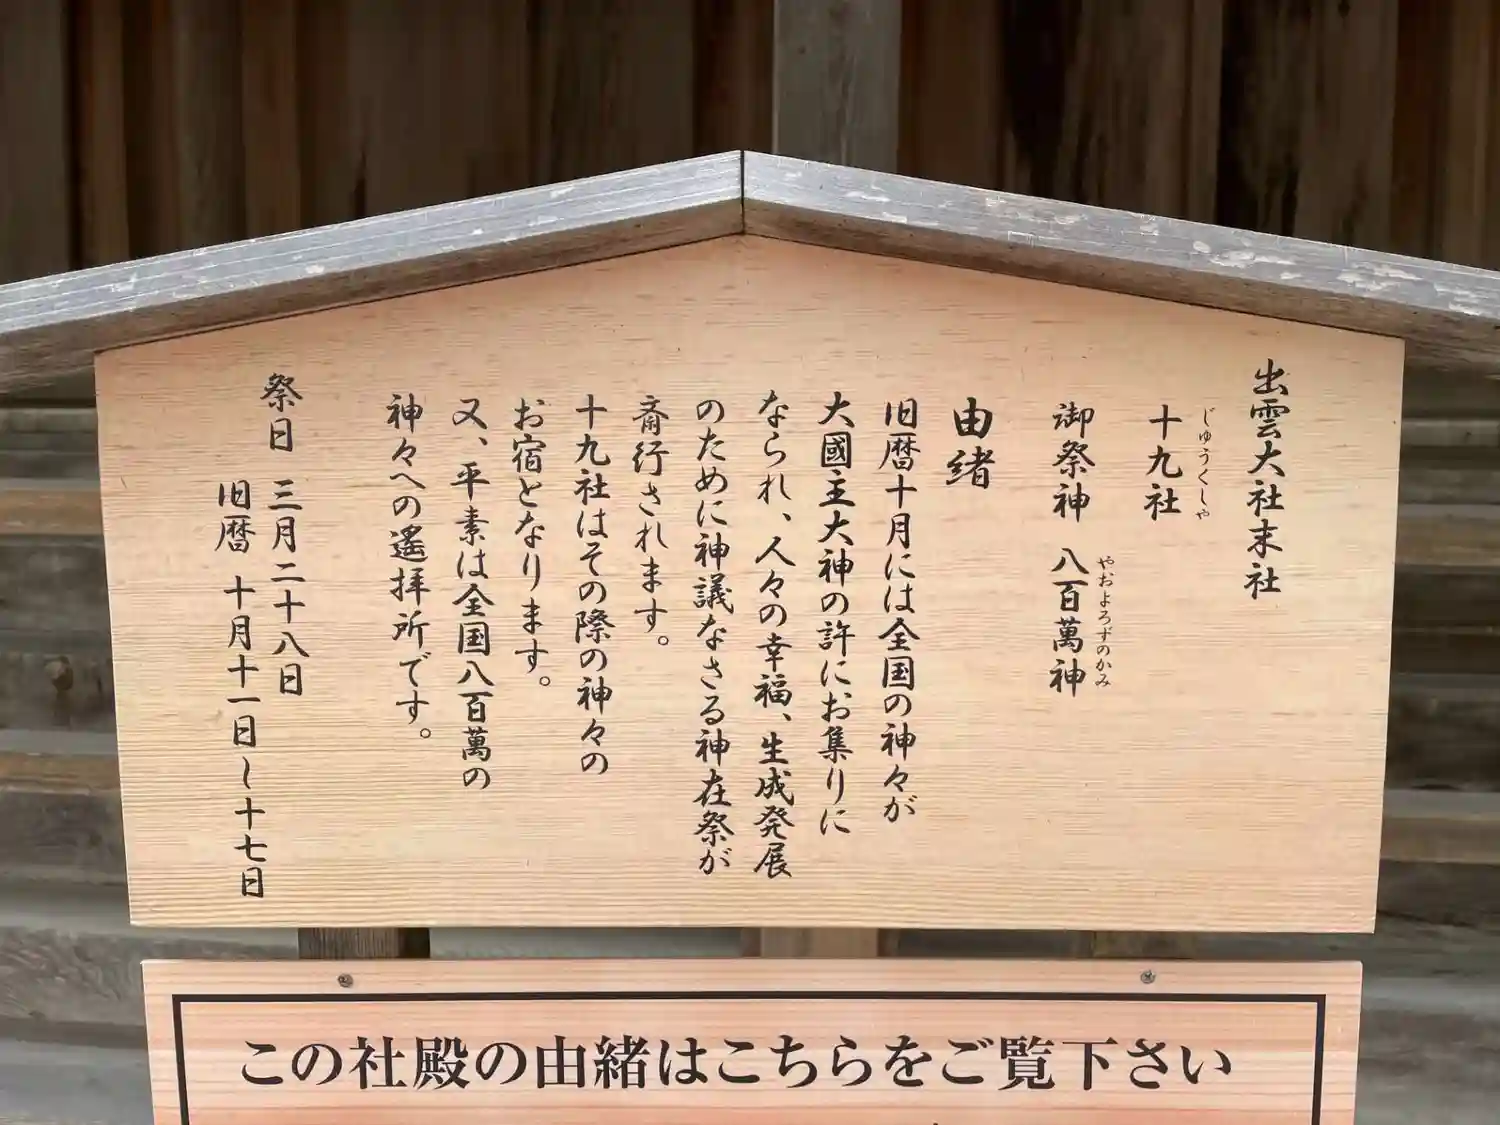 出雲大社末社
じゅうくしゃ
十九社
やおよろずのかみ
御祭神 八百萬神
由緒
旧暦十月には全国の神々が
大國主大神の許にお集りに
なられ、人々の幸福、生成発展
のために神議なさる神在祭が
斎行されます。
十九社はその際の神々の
お宿となります。
又、平素は全国八百萬の
神々への遙拝所です。
祭日 三月二十八日
旧暦 十月十一日～十七日
この社殿の由緒はこちらをご覧下さい